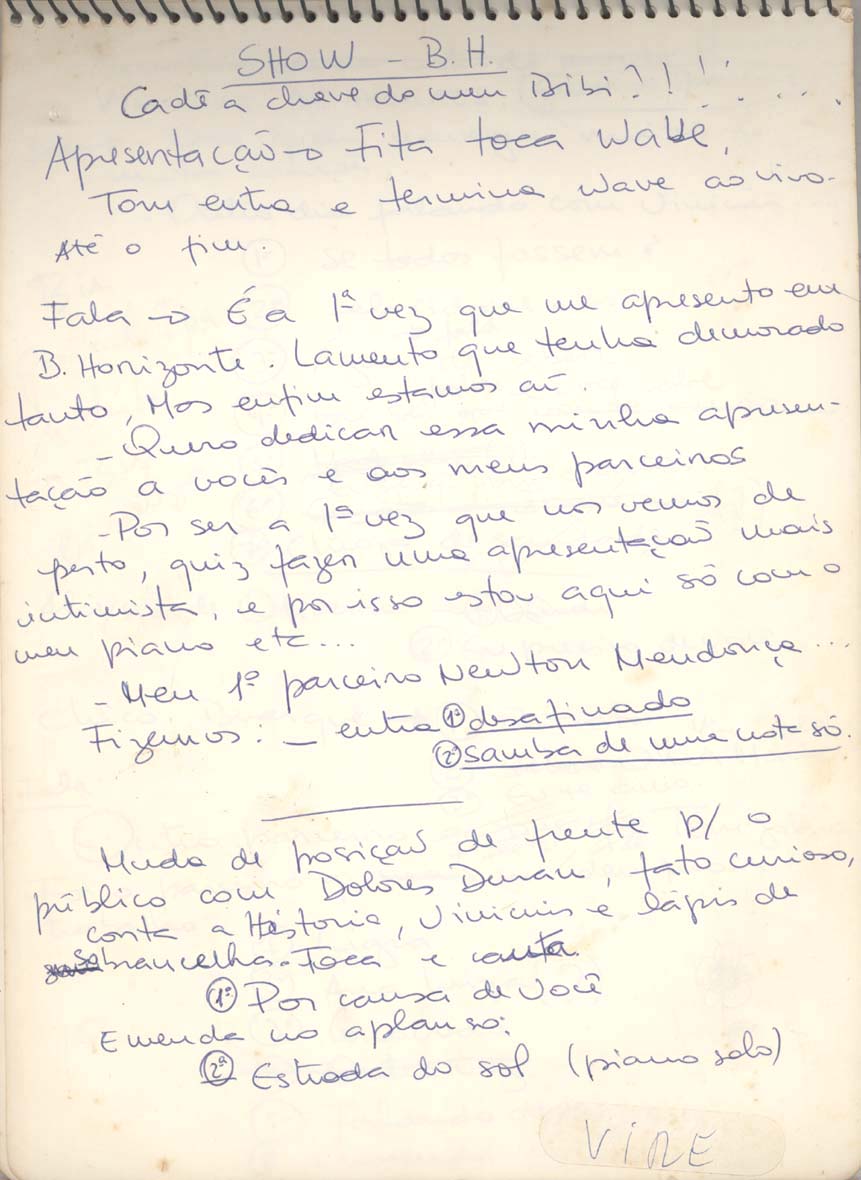 SHOW - B.H.
Cadê a chave do meu Bibi?!!!....
Apresentação → Fita toca Wave,
Tom entra e termina wave ao vivo.
Até o fim.
Fala → É a 1ª vez que me apresento em
B. Horizonte. Lamento que tenha demorado
tanto, Mas enfim estamos aí.
- Quero dedicar essa minha apresen-
tação a vocês e aos meus parceiros
- Por ser a 1ª vez que nos vemos de
perto, quiz fazer uma apresentação mais
intimista, e por isso estou aqui só com o
meu piano etc...
- Meu 1º parceiro Newton Mendonça...
Fizemos: - entra 1ª desafinado
2ª samba de uma nota só.
Muda de posição de frente p/ o
público com Dolores Duran, fato curioso,
conta a História, Vinicius e lápis de
sobrancelha. Toca e canta.
1ª Por causa de Você
Emenda no aplauso:
2ª Estrada do sol (piano solo)
VIRE